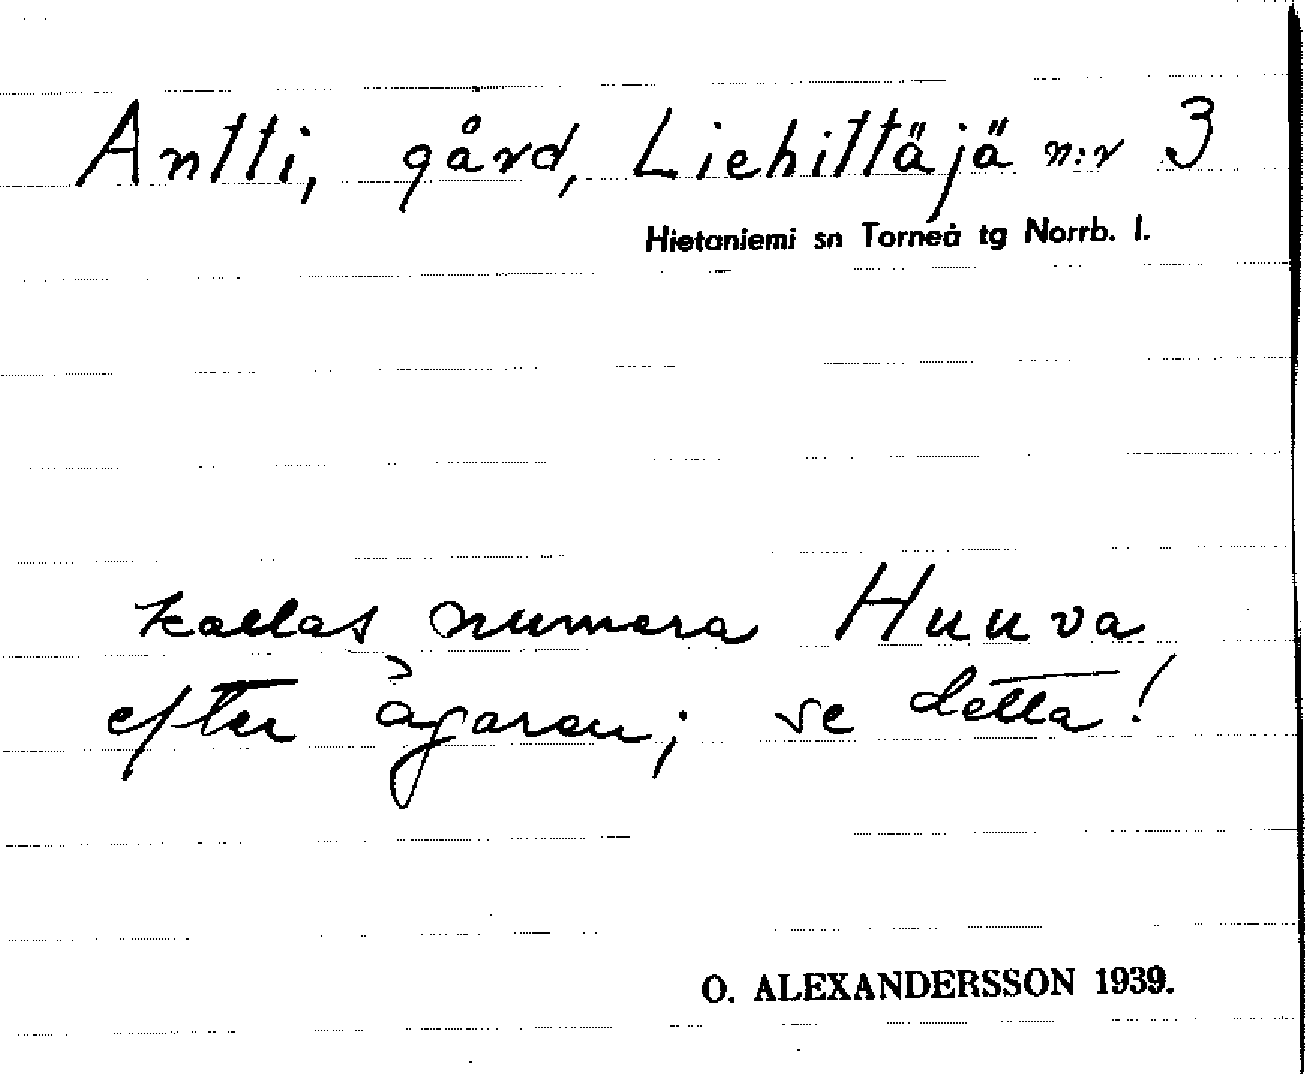 Antti, gård, Liehittäjä n:r 3
Hietaniemi sn Torneå tg Norrb. l.
kallas numera Huuva
efter ägaren; se detta!
O. ALEXANDERSSON 1939.